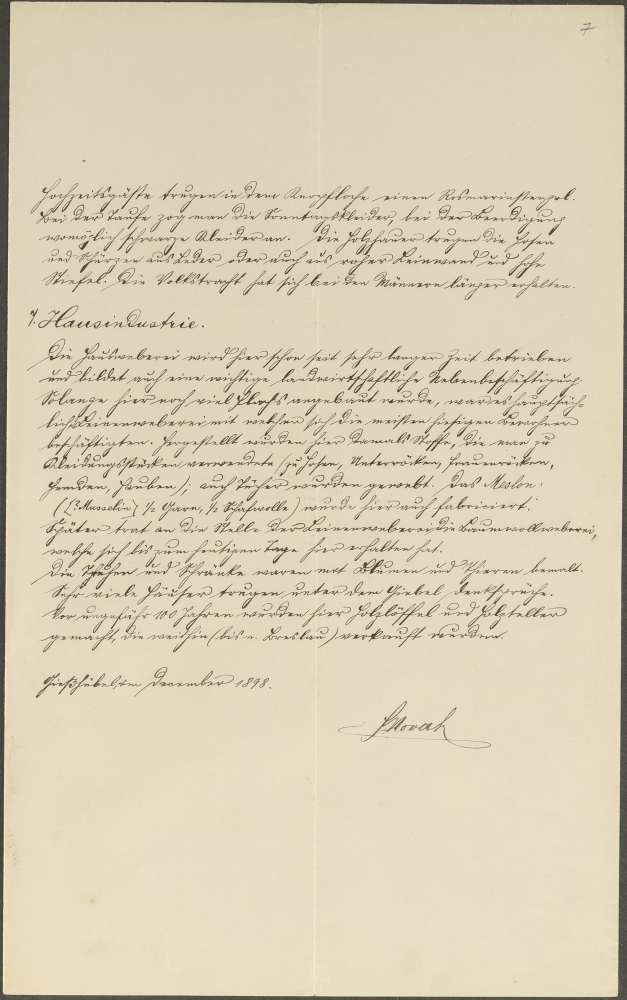 7
Hochzeitsgäste trugen in dem Knopfloche einen Rosmarinstengel.
Bei der Taufe zog man die Sonntagskleider, bei der Beerdigung
womöglich schwarze Kleider an. Die Holzhauer trugen die Hosen
und Schürzen aus Leder oder auch aus roher Leinwand und hohe
Stiefel. Die Volkstracht hat sich bei den Männern länger erhalten.
7. Hausindustrie.
Die Hausweberei wird hier schon seit sehr langer Zeit betrieben
und bildet auch eine wichtige landwirtschaftliche Nebenbeschäftigung.
Solange hier noch viel Flachs angebaut wurde, war es hauptsäch-
lich Leinenweberei mit welcher sich die meisten hiesigen Bewohner
beschäftigten. Hergestellt wurden hier damals Stoffe, die man zu
Kleidungsstücken verwendete (zu Hosen, Unterröcken, Frauenröcken,
Hemden, Hauben); auch Tücher wurden gewebt. Das Meslon.
(Musselin ½ Garn, ½ Schafwolle) wurde hier auch fabriciert.
Später trat an die Stelle der Leinenweberei die Baumwollweberei,
welche sich bis zum heutigen Tage hier erhalten hat.
Die Truhen und Schränke waren mit Blumen und Thieren bemalt.
Sehr viele Häuser trugen unter dem Giebel Denksprüche.
Vor ungefähr 100 Jahren wurden hier Holzlöffel und Holzteller
gemacht, die weithin (bis n. Breslau) verkauft wurden.
Gießhübel, im December 1898.
Novak